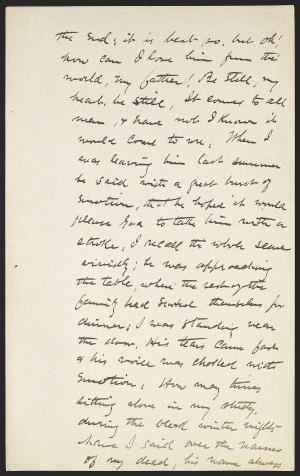 the end; it is best so, but oh!
how can I lose him from the
world, my father! Be still, my
heart, be still, It comes to all
men, & have not I known it
would come to me, When I
was leaving him last summer
he said with a great burst of
emotion, that he hoped it would
please God to take him with a
stroke, I recall the whole scene
vividly; he was approaching
the table, where the rest of the
family had seated themselves for
dinner; I was standing near
the door. His tears came fast
& his voice was choked with
emotion, How many times
sitting alone in my study,
during the bleak winter nights
have I said over the names
of my dead, his name always